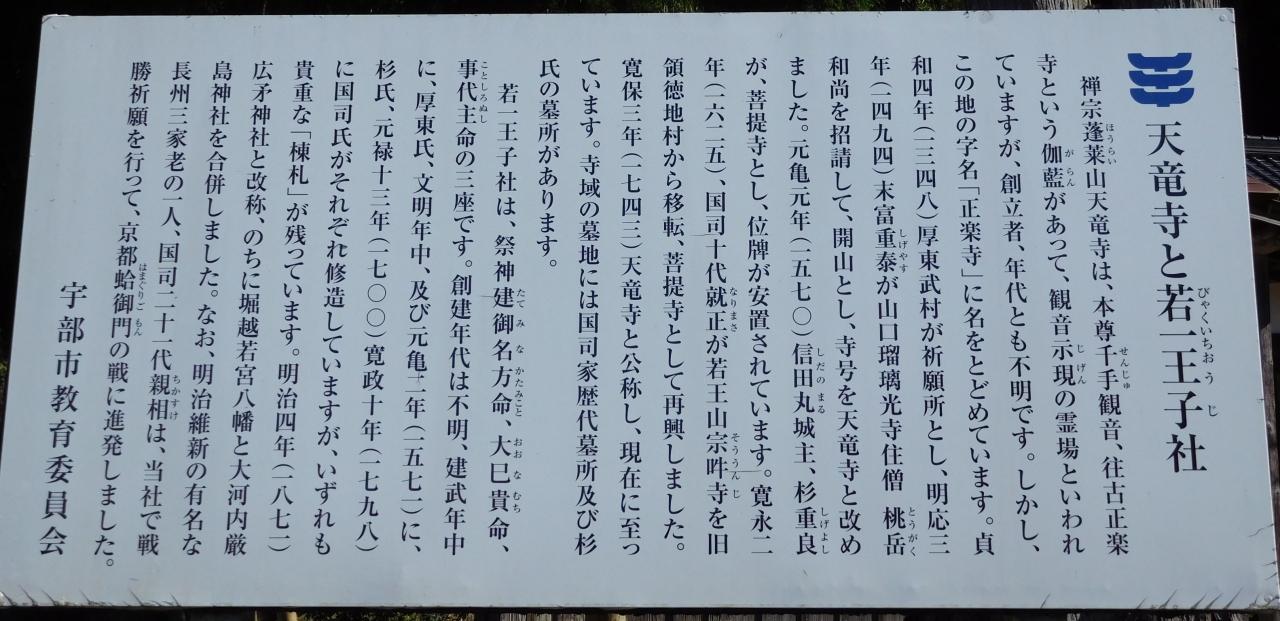 天竜寺と若一王子社
禅宗蓬莱山天竜寺は、本尊千手観音、往古正楽
寺という伽藍があって、観音示現の霊場といわれ
ていますが、創立者、年代とも不明です。しかし、
この地の字名「正楽寺」に名をとどめています。貞
和四年（一三四八）厚東武村が祈願所とし、明応三
年（一四九四）末富重泰が山口瑠璃光寺住僧 桃岳
和尚を招請して、開山とし、寺号を天竜寺と改め
ました。元亀元年（一五七〇）信田丸城主、杉重良
が、菩提寺とし、位牌が安置されています。寛永二
年（一六二五）、国司十代就正が若王山宗吽寺を旧
領徳地村から移転、菩提寺として再興しました。
寛保三年（一七四三）天竜寺と公称し、現在に至っ
ています。寺域の墓地には国司家歴代墓所及び杉
氏の墓所があります。
若一王子社は、祭神建御名方命、大巳貴命、
事代主命の三座です。創建年代は不明、建武年中
に、厚東氏、文明年中、及び元亀二年（一五七一）に、
杉氏、元禄十三年（一七〇〇）寛政十年（一七九八）
に国司氏がそれぞれ修造していますが、いずれも
貴重な「棟札」が残っています。明治四年（一八七一）
広矛神社と改称、のちに堀越若宮八幡と大河内厳
島神社を合併しました。なお、明治維新の有名な
長州三家老の一人、国司二十一代親相は、当社で戦
勝祈願を行って、京都蛤御門の戦に進発しました。
宇部市教育委員会